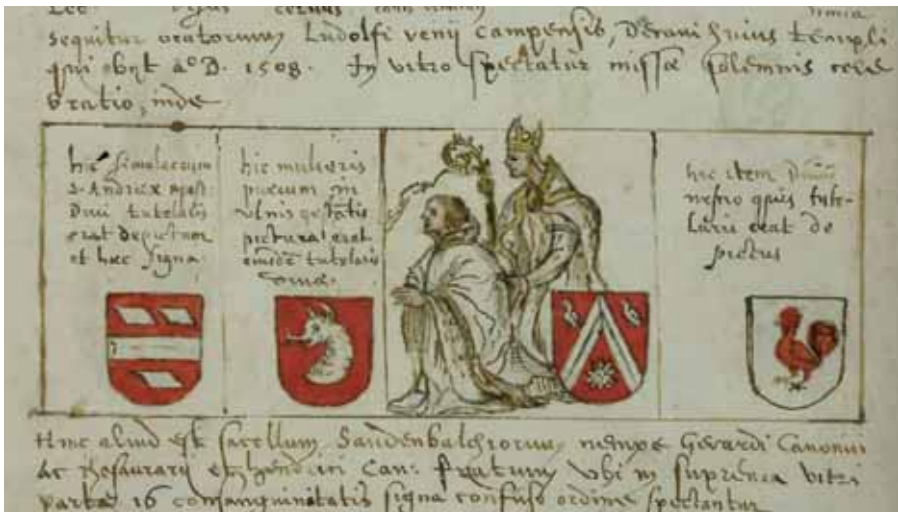 sequitur oratorium Ludolfi venij campensis, Decani huius templi
qui obijt aº D. 1508. In vitro spectatur missæ solemnis cele
bratio, inde
hic simulacrum
S. Andreæ apost:
Divi tutelaris
erat depictum
et hæc signa
hic mulieris
puerum in
ulnis gestantis
pictura erat
eiusdē tutelaris
hic item Divus
nescio quis tute-
laris erat de
pictus
Hinc aliud est sacellum Saudenbalchiorum, nempe Gerardi Canonici
ac Thesaurarij et hendrici Can: fratrum, ubi in suprema vitri
parte 16 consanguinitatis signa confuso ordine spectantur